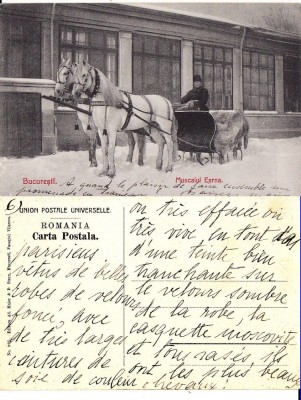 Bucoresti. Muscalul Earna.
A quand le plaisir de faire ensemble une
promenade en
6)
UNION POSTALE UNIVERSELLE.
ROMANIA
Carta Postala.
parisiens
vêtus de belles
robes de velours
foncé, avec
de très larges
ceintures de
soie de couleur
ou très effacée ou
très vive, en tout cas
d'une teinte bien
tranchante sur
le velours sombre
de la robe, la
casquette moscovite
et tous rasés, ils
ont les plus beaux
chevaux!